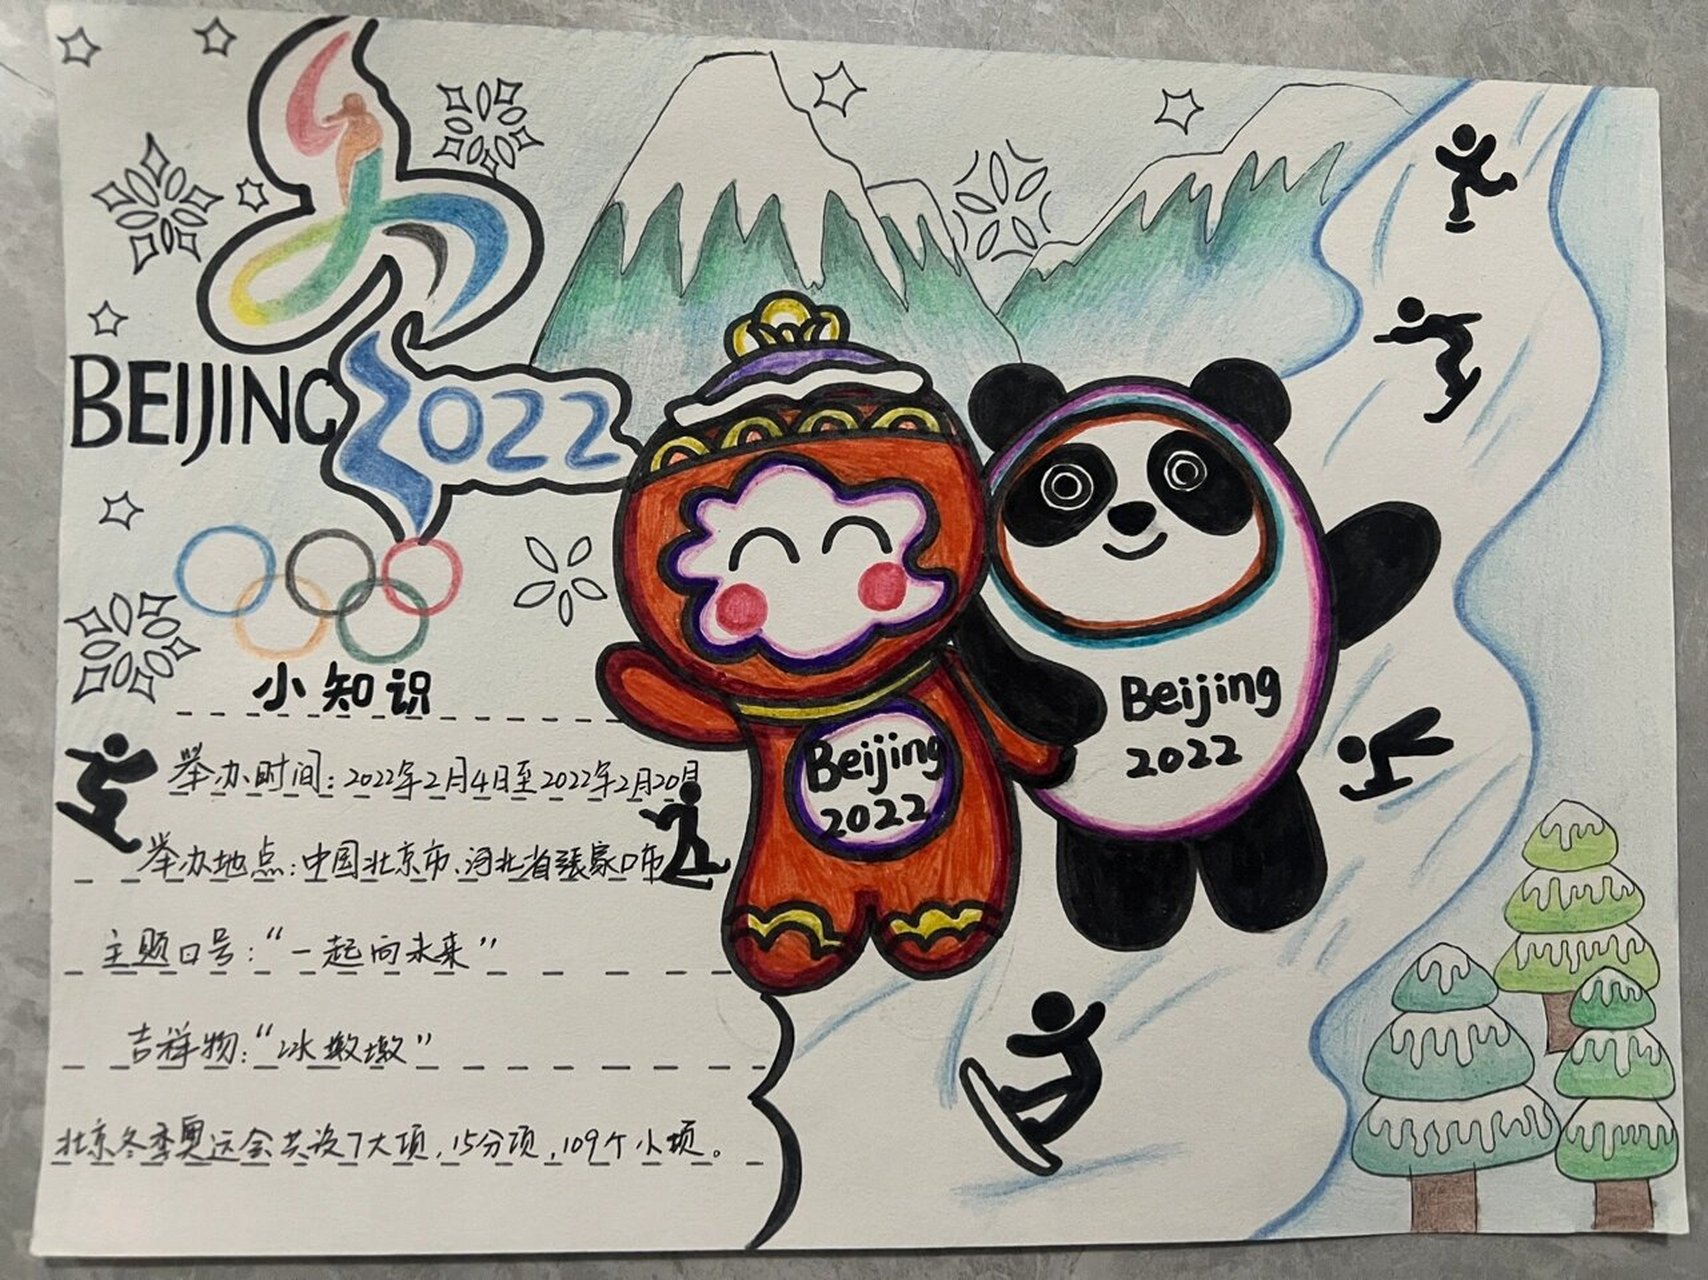 BEIJING 2022
小知识
举办时间：2022年2月4日至2022年2月20日
举办地点：中国北京市、河北省張家口市
主题口号："一起向未来"
吉祥物："冰墩墩"
北京冬季奥运会共设7大项，15分项，109个小项。
Beijing
2022
Beijing
2022